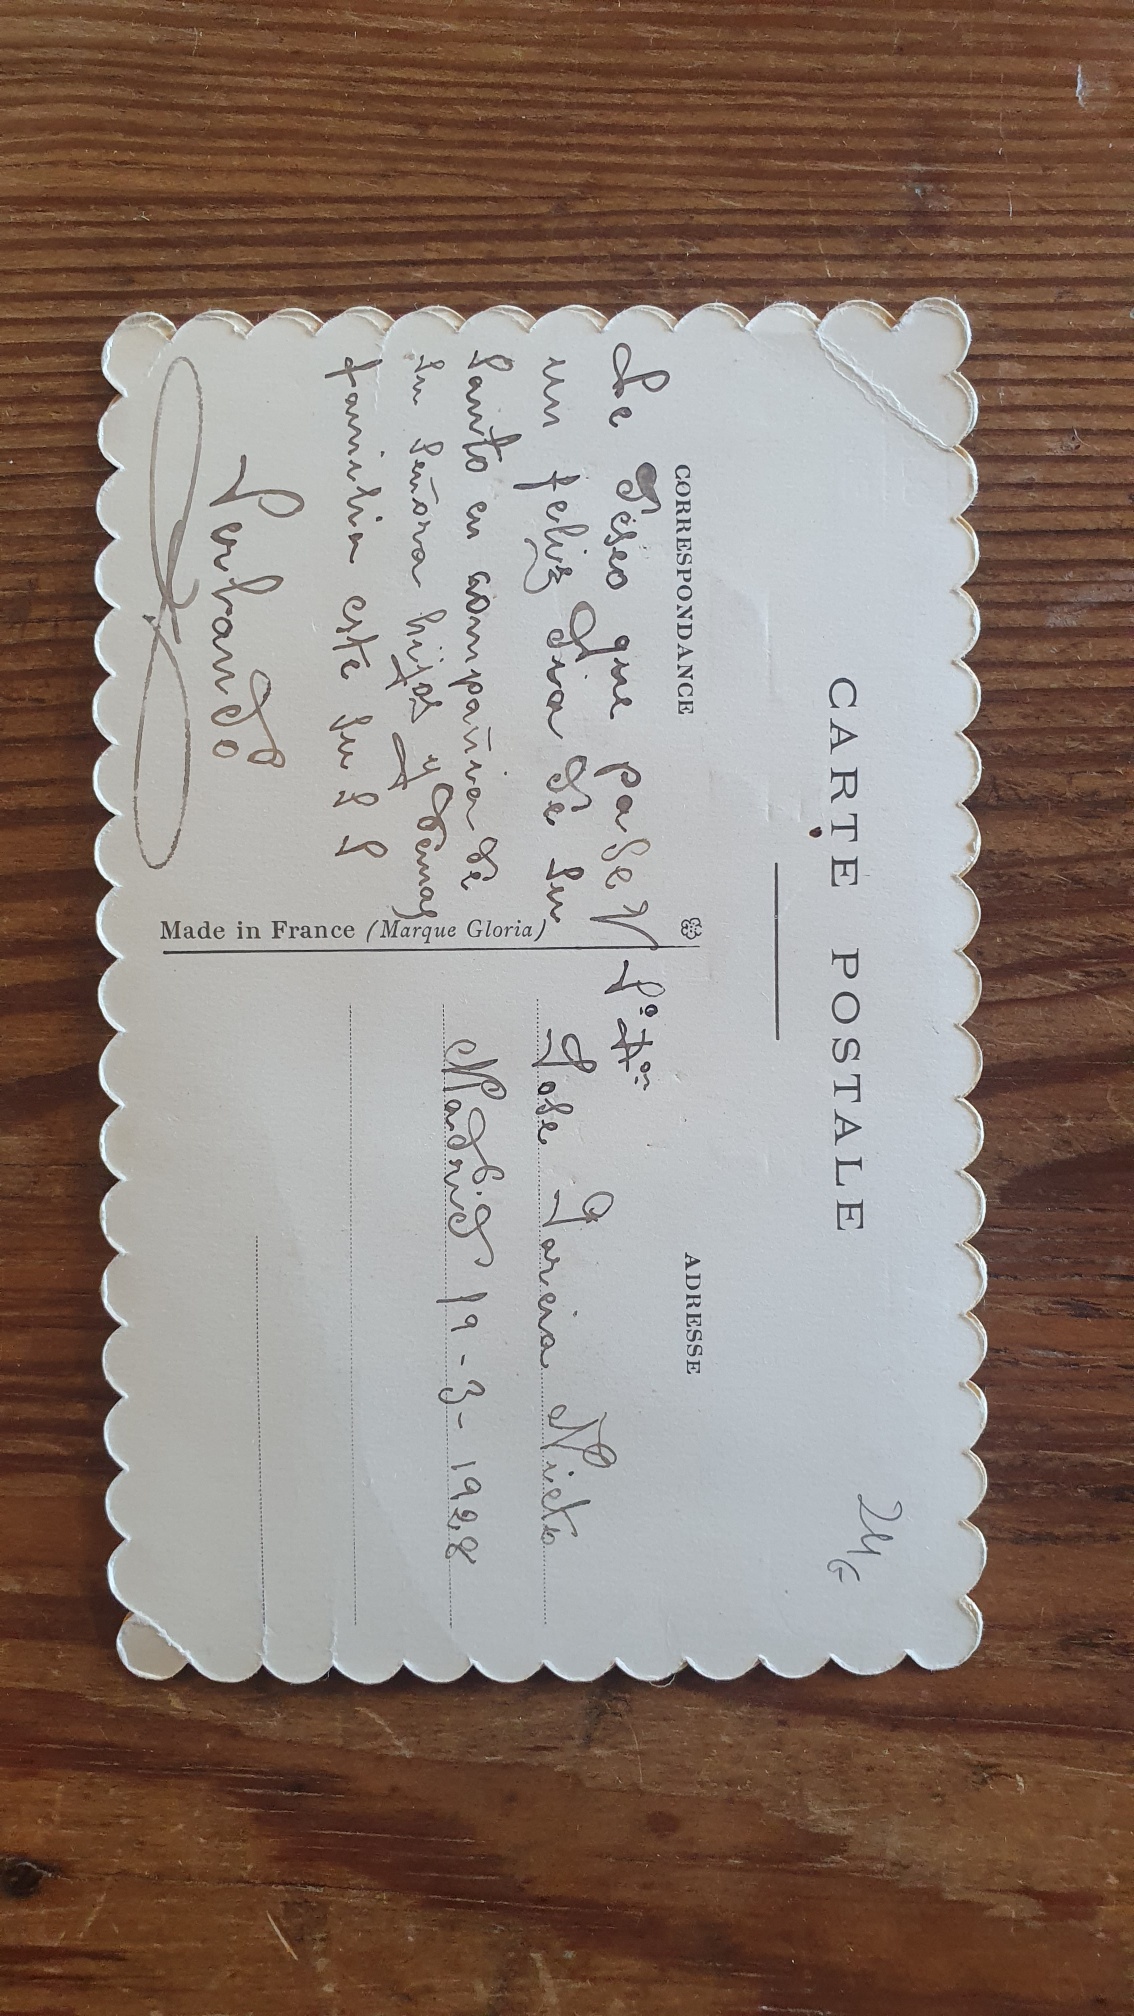 CARTE POSTALE
CORRESPONDANCE
Le deseo que pase V
un feliz dia de su
Santo en compañia de
su señora hijos y demas
familia este su S S
Made in France (Marque Gloria)
ADRESSE
Jose Garcia Nieto
Madrid 19-3-1928